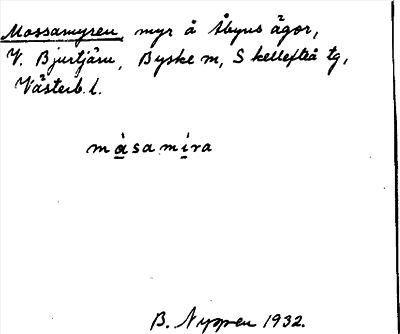 Mossamyren, myr å Åbyns ägor,
V. Bjurtjärn, Byske m, Skellefteå tg,
Västerb. l.
màsamìra
B. Nyppen 1932.